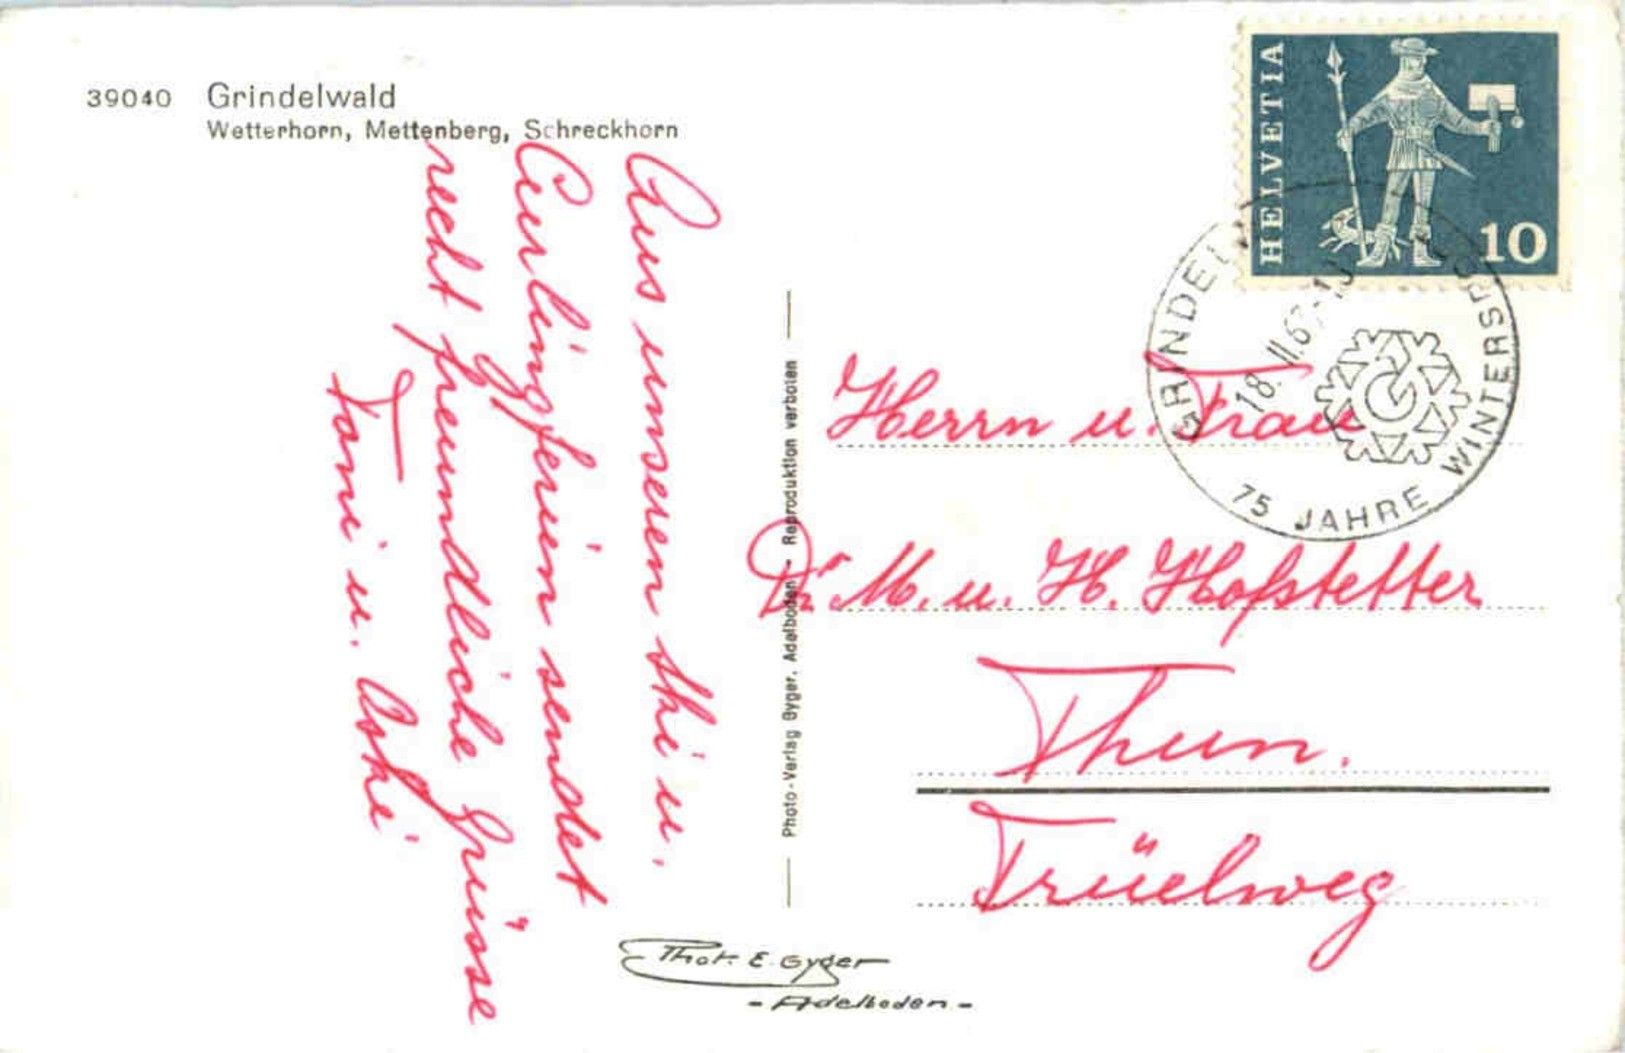 39040 Grindelwald
Wetterhorn, Mettenberg, Schreckhorn
Aus unseren Ski u.
Curlingferien sendet
recht freundliche Grüsse
Toni u. Oski
Photo-Verlag Gyger, Adelboden - Reproduktion verboten
HELVETIA
10
GRINDEL
18. II. 67-
75 JAHRE WINTERSPO
G
Herrn u. Frau
Dr. M. u. H. Hofstetter
Thun.
Trüelweg
Phot. E. Gyger
- Adelboden -